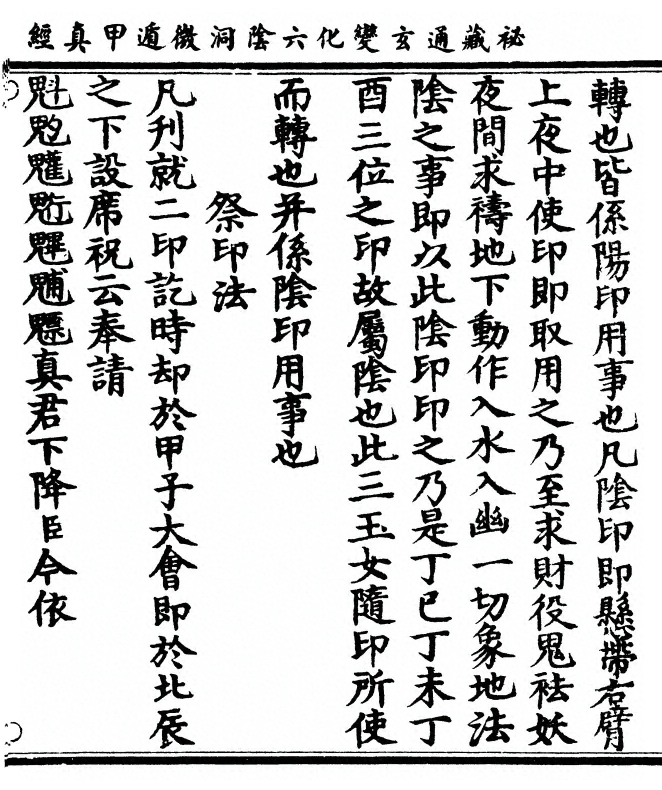 祕藏通玄變化六陰洞微遁甲真經
轉也皆係陽印用事也凡陰印即懸帶右臂
上夜中使印即取用之乃至求財役鬼祛妖
夜間求禱地下動作入水入幽一切象地法
陰之事即以此陰印印之乃是丁巳丁未丁
酉三位之印故屬陰也此三玉女隨印所使
而轉也并係陰印用事也
祭印法
凡刋就二印訖時却於甲子大會即於北辰
之下設席祝云奉請
魁𩲃𩵄𩳐魓䰢魒真君下降臣今依